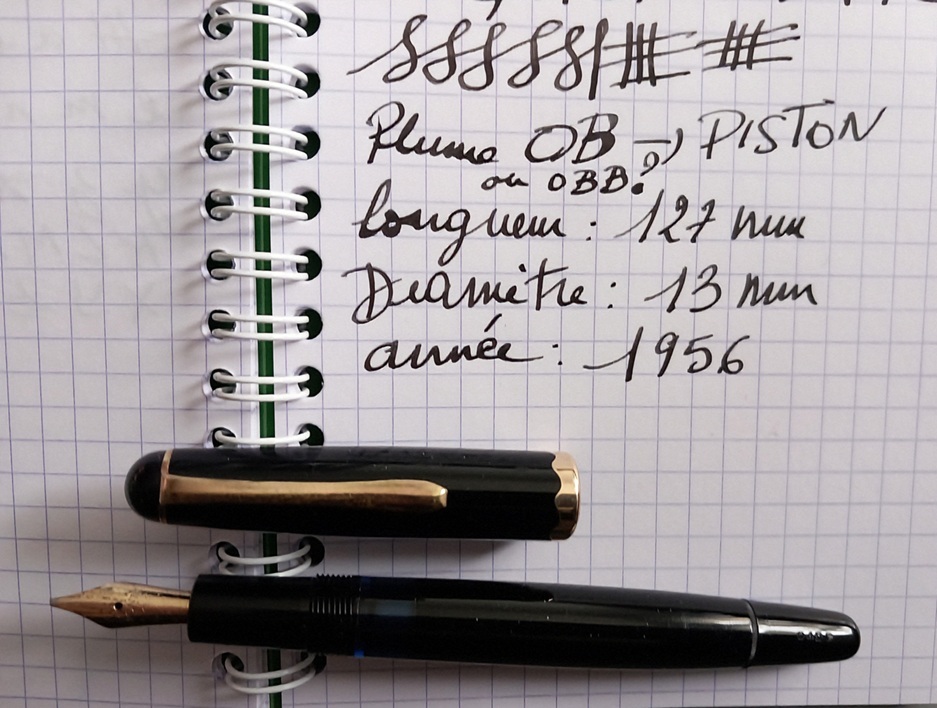 Plume OB → PISTON
ou OBB?
longueur : 127 mm
Diamètre : 13 mm
année : 1956